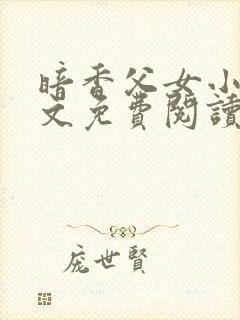 暗香父女小
文免費閱讀
庞世賢